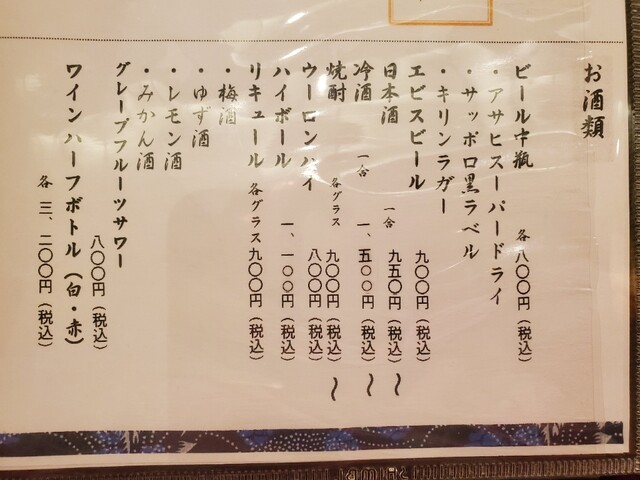 お酒類
ビール中瓶 各八〇〇円(税込)
・アサヒスーパードライ
・サッポロ黒ラベル
・キリンラガー
エビスビール 九〇〇円(税込)
日本酒 一合 九五〇円(税込)〜
冷酒 一合 一、五〇〇円(税込)〜
焼酎 各グラス 九〇〇円(税込)〜
ウーロンハイ 八〇〇円(税込)
ハイボール 一、一〇〇円(税込)
リキュール 各グラス九〇〇円(税込)
・梅酒
・ゆず酒
・レモン酒
・みかん酒
グレープフルーツサワー 八〇〇円(税込)
ワインハーフボトル(白・赤) 各三、二〇〇円(税込)